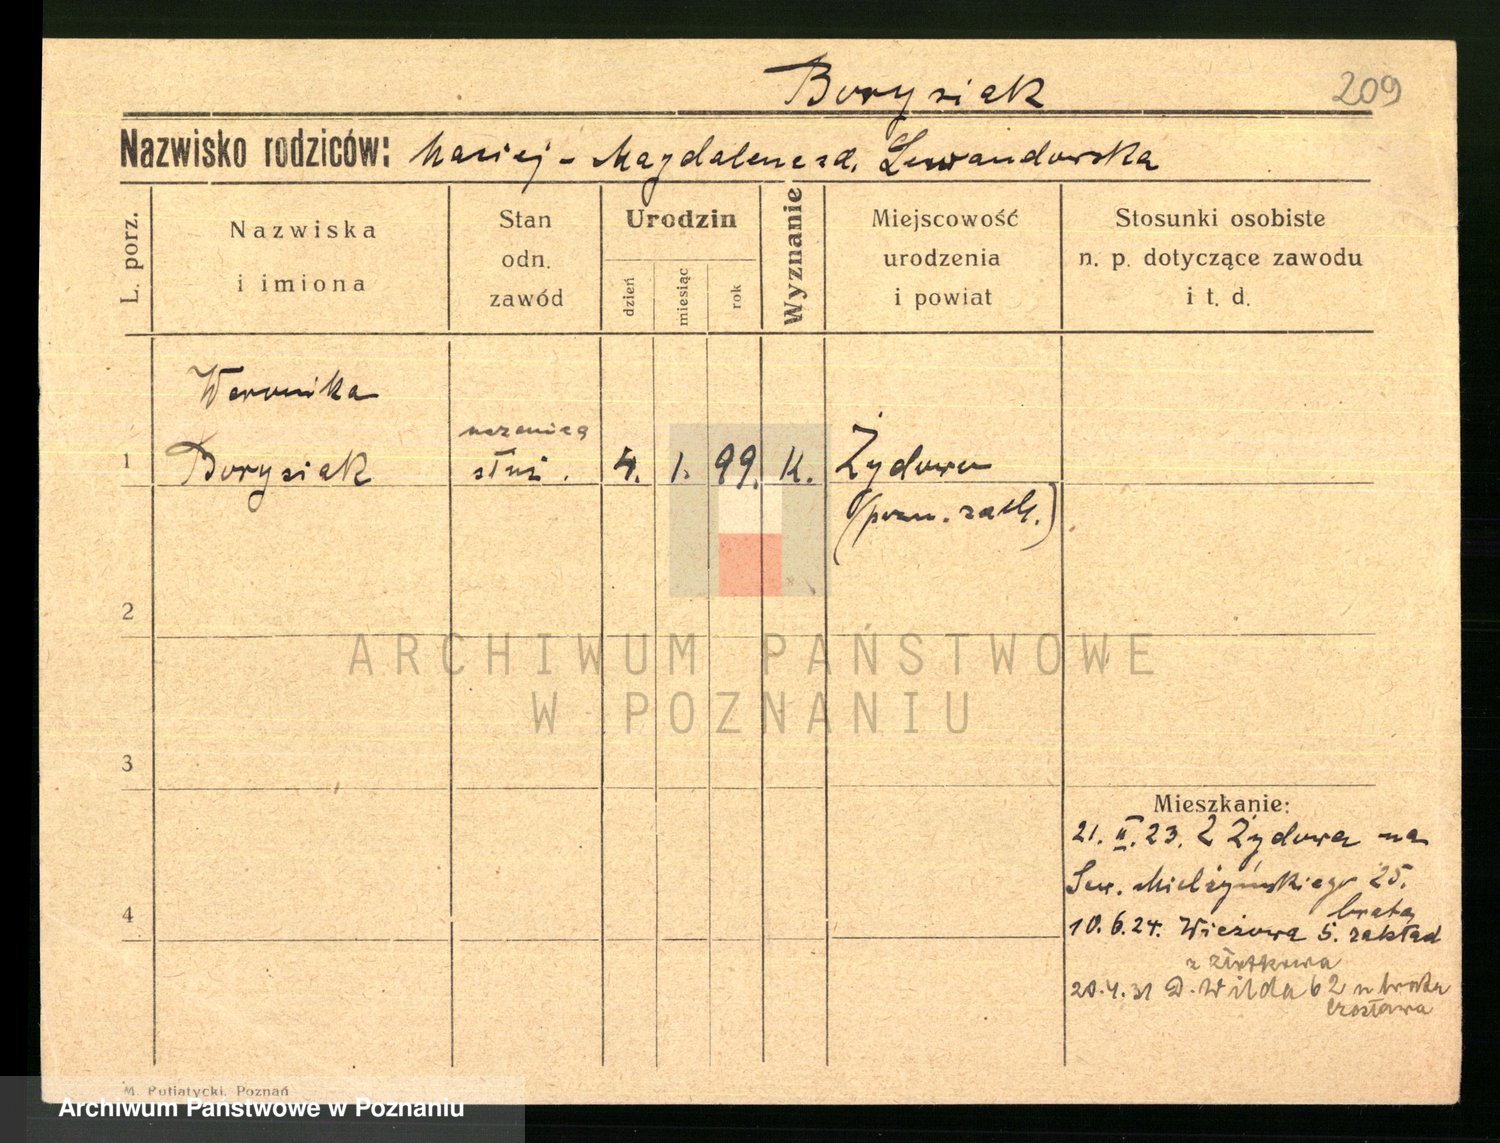 Borysiak
209
Nazwisko rodziców: Maciej - Magdalena zd. Lewandowska
L. porz.
Nazwiska
i imiona
Stan
odn.
zawód
Urodzin
dzień
miesiąc
rok
Wyznanie
Miejscowość
urodzenia
i powiat
Stosunki osobiste
n. p. dotyczące zawodu
i t. d.
Weronika
1 Borysiak służ. 4. 1. 99. K. Żydowo
(pozn. zach.)
2
3
4
ARCHIWUM PAŃSTWOWE
W POZNANIU
Mieszkanie:
21. II. 23. Z Żydowa na
Sew. Mielżyńskiego 25.
brata
10. 6. 24. Wieżowa 5. zakład
z Złotkowa
28.4.31 D. Wilda 62 u brata
M. Putiatycki, Poznań
Archiwum Państwowe w Poznaniu